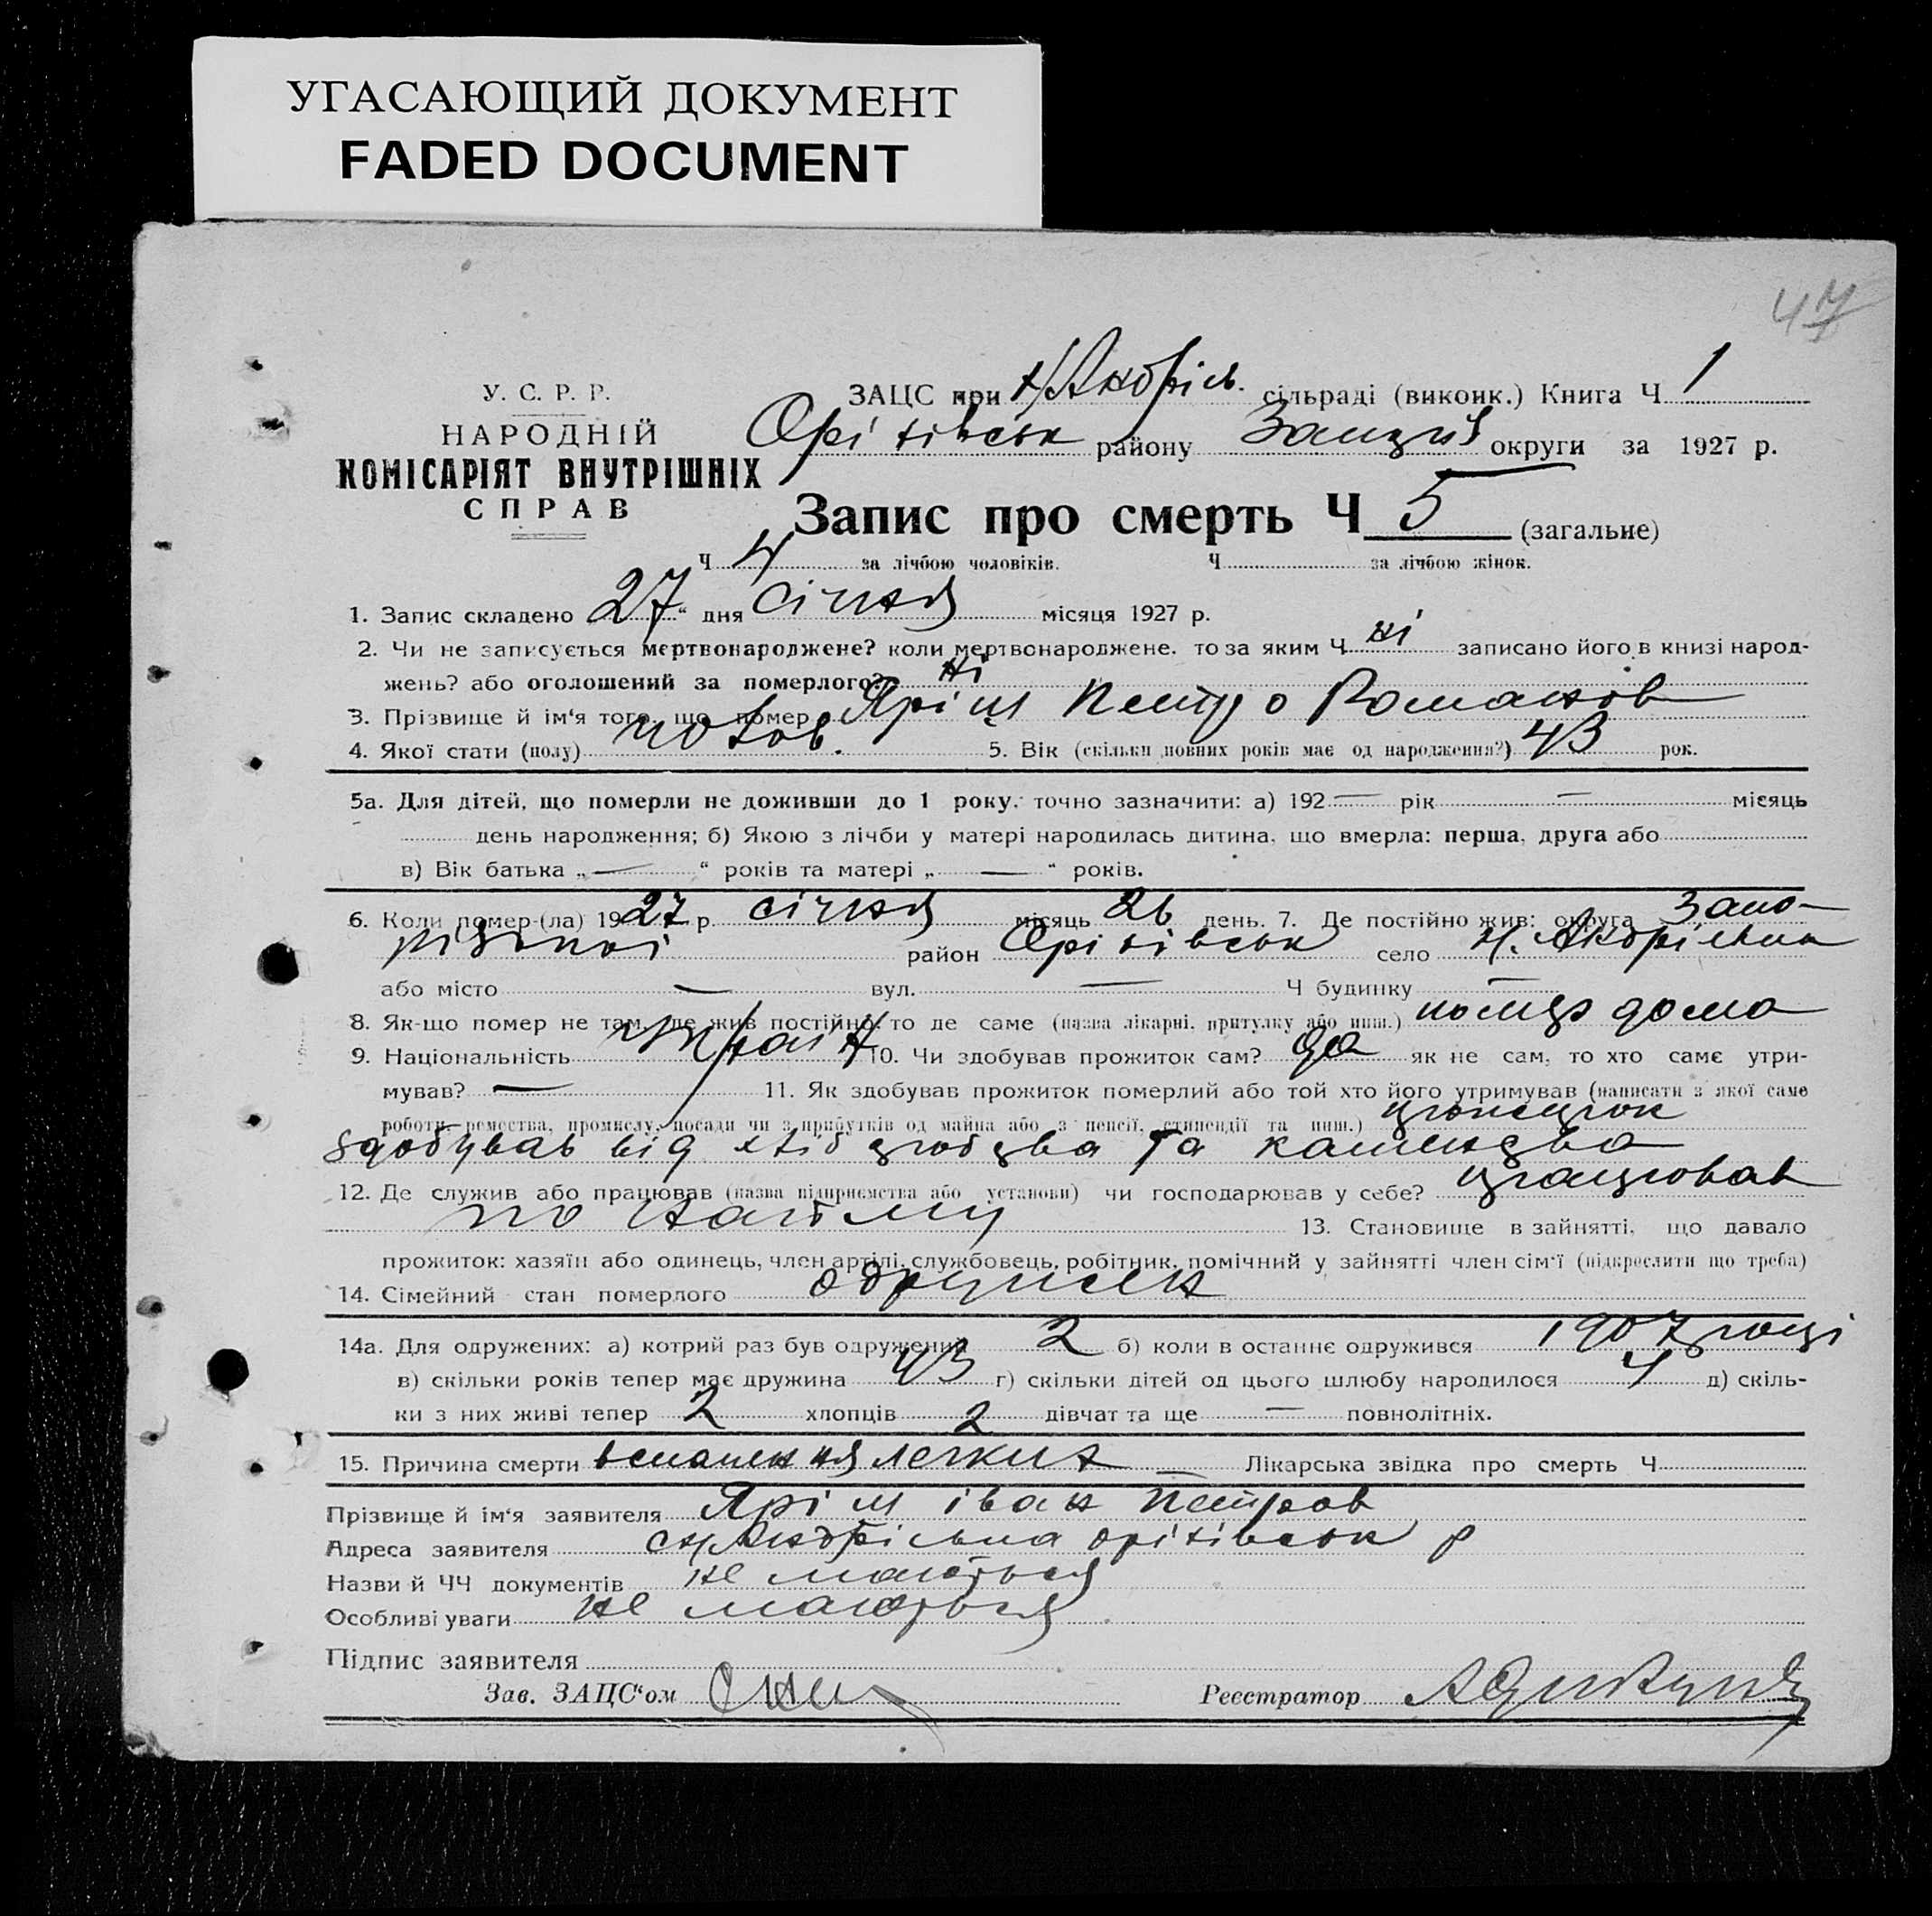 УГАСАЮЩИЙ ДОКУМЕНТ
FADED DOCUMENT
47
У. С. Р. Р.
НАРОДНІЙ
КОМІСАРІЯТ ВНУТРІШНІХ
СПРАВ
ЗАЦС при сільраді (виконк.) Книга Ч 1
Оріхівськ району округи за 1927 р.
Запис про смерть Ч 5 (загальне)
Ч 4 за лічбою чоловіків. Ч за лічбою жінок.
1. Запис складено 27 " дня січня місяця 1927 р.
2. Чи не записується мертвонароджене? коли мертвонароджене. то за яким Ч ні записано його в книзі народ-
жень? або оголошений за померлого? ні
3. Прізвище й ім'я того, що помер Петро Романов
4. Якої стати (полу) чолов. 5. Вік (скільки повних років має од народження?) 43 рок.
5а. Для дітей, що померли не доживши до 1 року, точно зазначити: а) 192 — рік — місяць
день народження; б) Якою з лічби у матері народилась дитина, що вмерла: перша, друга або
в) Вік батька „ — " років та матері „ — " років.
6. Коли помер-(ла) 1927 р. січня місяць 26 день. 7. Де постійно жив: округа Запо-
різької район Оріхівськ село
або місто — вул. — Ч будинку —
8. Як-що помер не там, де жив постійно, то де саме (назва лікарні, притулку або инш.) помер дома
9. Національність 10. Чи здобував прожиток сам? да як не сам, то хто саме утри-
мував? — 11. Як здобував прожиток померлий або той хто його утримував (написати з якої саме
роботи, ремества, промислу, посади чи з прибутків од майна або з пенсії, стипендії та инш.)
здобував від хліб та
12. Де служив або працював (назва підприємства або установи) чи господарював у себе? працював
по найму 13. Становище в зайнятті, що давало
прожиток: хазяїн або одинець, член артілі, службовець, робітник, помічний у зайнятті член сім'ї (підкреслити що треба)
14. Сімейний стан померлого одружен
14а. Для одружених: а) котрий раз був одружений 2 б) коли в останнє одружився 1907 році
в) скільки років тепер має дружина 43 г) скільки дітей од цього шлюбу народилося 4 д) скіль-
ки з них живі тепер 2 хлопців 2 дівчат та ще — повнолітніх.
15. Причина смерти легких — Лікарська звідка про смерть Ч
Прізвище й ім'я заявителя іван Петров
Адреса заявителя оріхівськ р
Назви й ЧЧ документів не мається
Особливі уваги не мається
Підпис заявителя
Зав. ЗАЦС"ом Реєстратор